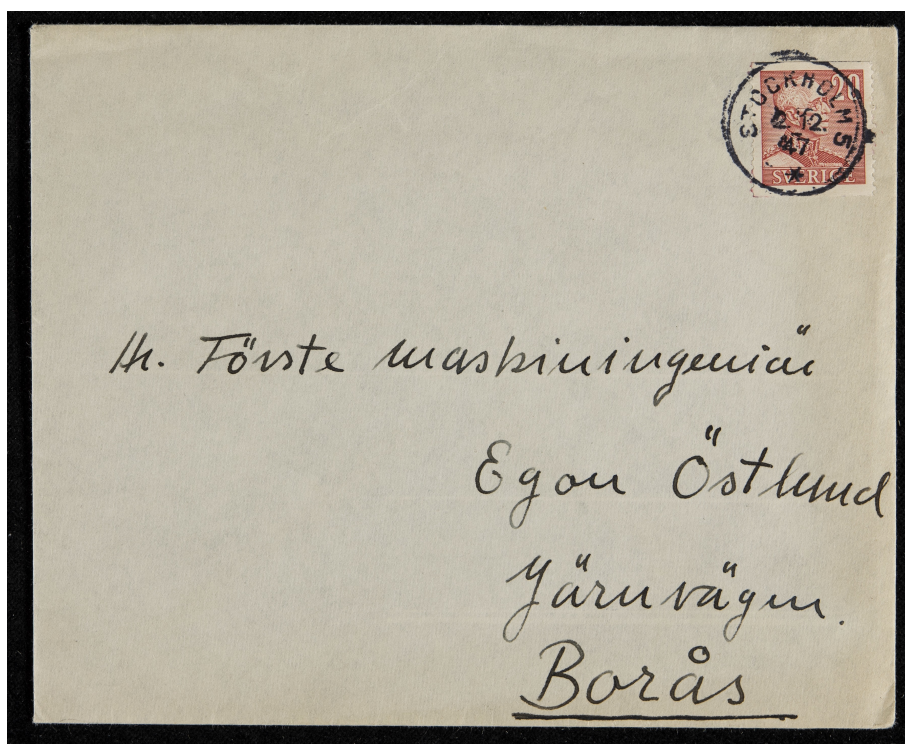 20
STOCKHOLM 5
12.12.
47
SVERIGE
Hr. Förste maskiningeniör
Egon Östlund
Järnvägen.
Borås